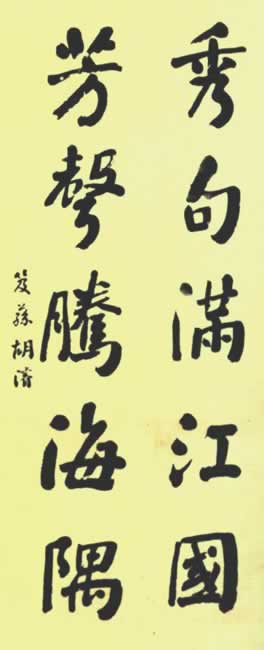 秀句滿江國
芳聲騰海隅
笈蓀胡